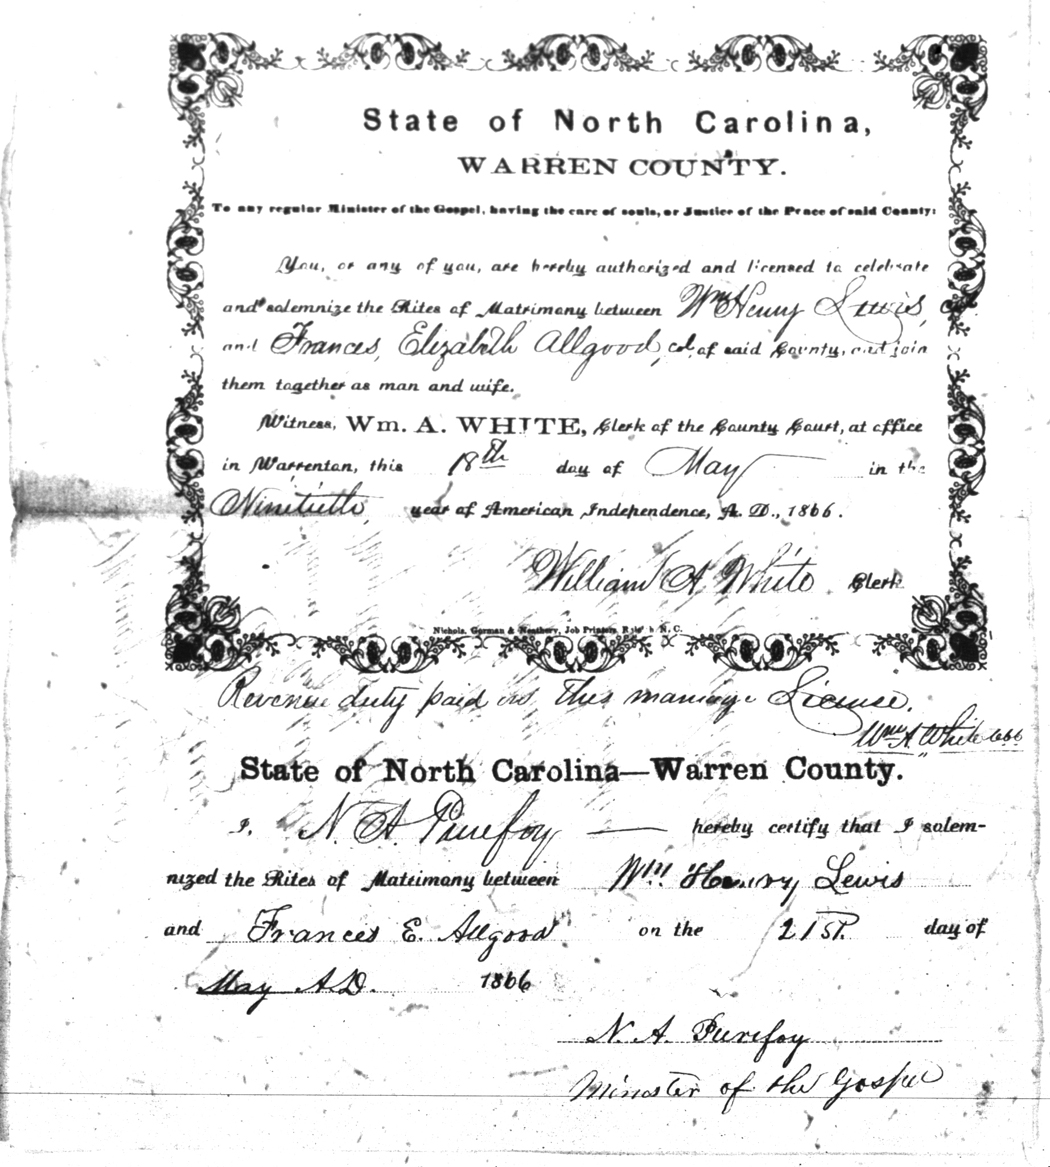 State of North Carolina,
WARREN COUNTY.
To any regular Minister of the Gospel, having the care of souls, or Justice of the Peace of said County:
You, or any of you, are hereby authorized and licensed to celebrate
and solemnize the Rites of Matrimony between Wm Henry Lewis, col
and Frances, Elizabeth Allgood, col, of said County, and join
them together as man and wife.
Witness, Wm. A. WHITE, Clerk of the County Court, at office
in Warrenton, this 18th day of May in the
Ninetieth year of American Independence, A. D., 1866.
William A White Clerk
Nichols, Gorman & Neathery, Job Printers, Ral'h N. C.
Revenue duty paid on this marriage License.
Wm A. White
State of North Carolina—Warren County.
I, N. A. Purefoy hereby certify that I solem-
nized the Rites of Matrimony between Wm Henry Lewis
and Frances E. Allgood on the 21st. day of
May A.D. 1866
N. A. Purefoy
Minister of the Gospel